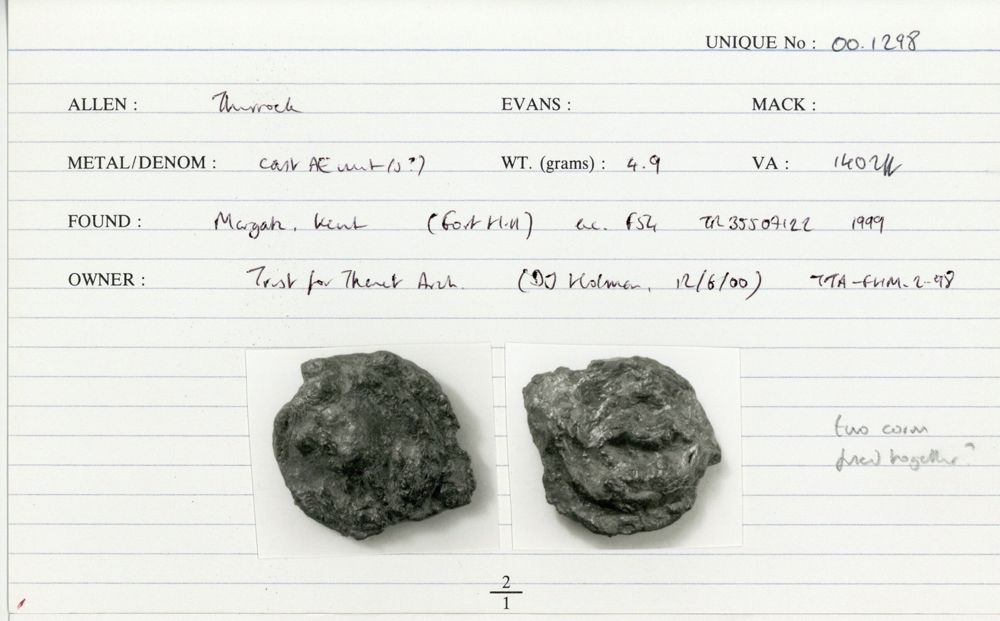 UNIQUE No : 00.1298
ALLEN : Thurrock EVANS : MACK :
METAL/DENOM : cast AE unit(s?) WT. (grams) : 4.9 VA : 1402ff
FOUND : Margate, Kent (Fort Hill) acc. F54 TR 35507122 1999
OWNER : Trust for Thanet Arch. (DJ Holman, 12/6/00) TTA-FHM-2-98
two coins
fused together?
2
1